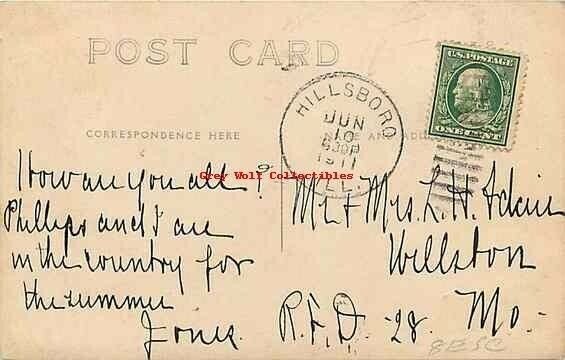 POST CARD
U.S. POSTAGE
ONE CENT
HILLSBORO
JUN
10
530P
1911
ILL.
CORRESPONDENCE HERE
NAME AND ADD
Grey Wolf Collectibles
How are you all?
Phillips and I are
in the country for
the summer
Mr + Mrs. L. H. Adair
Wellston
R.F.D. 28. Mo.